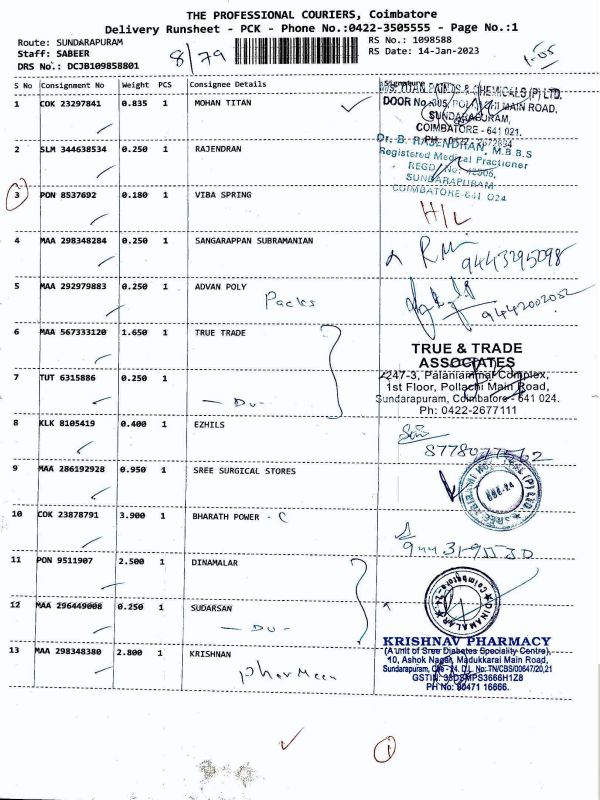 THE PROFESSIONAL COURIERS, Coimbatore
Delivery Runsheet - PCK - Phone No.:0422-3505555 - Page No.:1
Route: SUNDARAPURAM
RS No.: 1098588
Staff: SABEER
8/79
RS Date: 14-Jan-2023
DRS No.: DCJB109858801
S No Consignment No Weight PCS Consignee Details Signature
1 COK 23297841 0.835 1 MOHAN TITAN
DOOR No. 305, POLLACHI MAIN ROAD,
SUNDARAPURAM,
COIMBATORE - 641 021.
2 SLM 344638534 0.250 1 RAJENDRAN
Dr. B. RAJENDRAN, M.B.B.S
Registered Medical Practioner
SUNDARAPURAM
COIMBATORE-641 024
3 PON 8537692 0.180 1 VIBA SPRING
H/L
4 MAA 298348284 0.250 1 SANGARAPPAN SUBRAMANIAN
9443295098
5 MAA 292979883 0.250 1 ADVAN POLY
Packs
9442002052
6 MAA 567333120 1.650 1 TRUE TRADE
TRUE & TRADE
ASSOCIATES
247-3, Palaniammal Complex,
7 TUT 6315886 0.250 1
- Du -
1st Floor, Pollachi Main Road,
Sundarapuram, Coimbatore - 641 024.
Ph: 0422-2677111
8 KLK 8105419 0.400 1 EZHILS
9 MAA 286192928 0.950 1 SREE SURGICAL STORES
10 COK 23878791 3.900 1 BHARATH POWER - C
11 PON 9511907 2.500 1 DINAMALAR
DINAMALAR
Coimbatore
12 MAA 296449008 0.250 1 SUDARSAN
- Du -
13 MAA 298348380 2.800 1 KRISHNAN
KRISHNAV PHARMACY
(A Unit of Sree Diabetes Speciality Centre),
10, Ashok Nagar, Madukkarai Main Road,
Sundarapuram, Cbe - 24. D.L. No: TN/CBS/00647/20,21
PH No: 80471 16666.
1